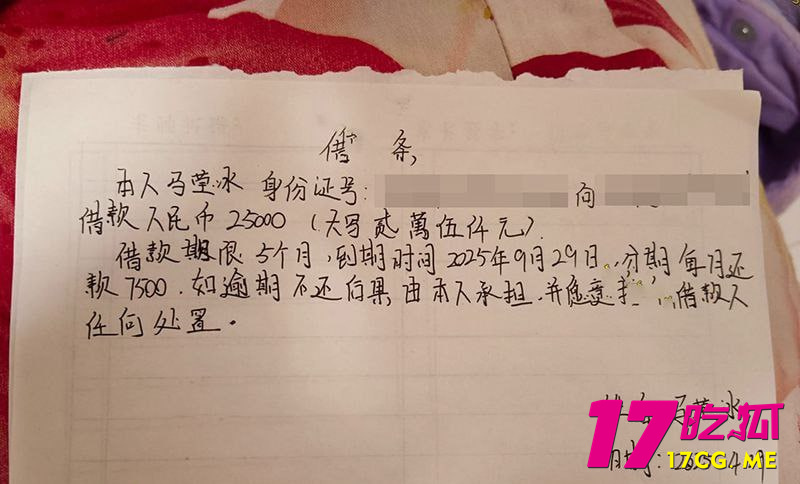 借条
本人马莹冰 身份证号: 向
借款人民币25000 (大写贰萬伍仟元).
借款期限5个月,到期时间2025年9月29日,分期每月还
款7500.如逾期不还后果由本人承担,并愿意 借款人
任何处置。
马莹冰
时间:
17吃狐
17CG.ME